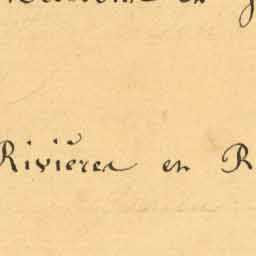 en
Rivières en R